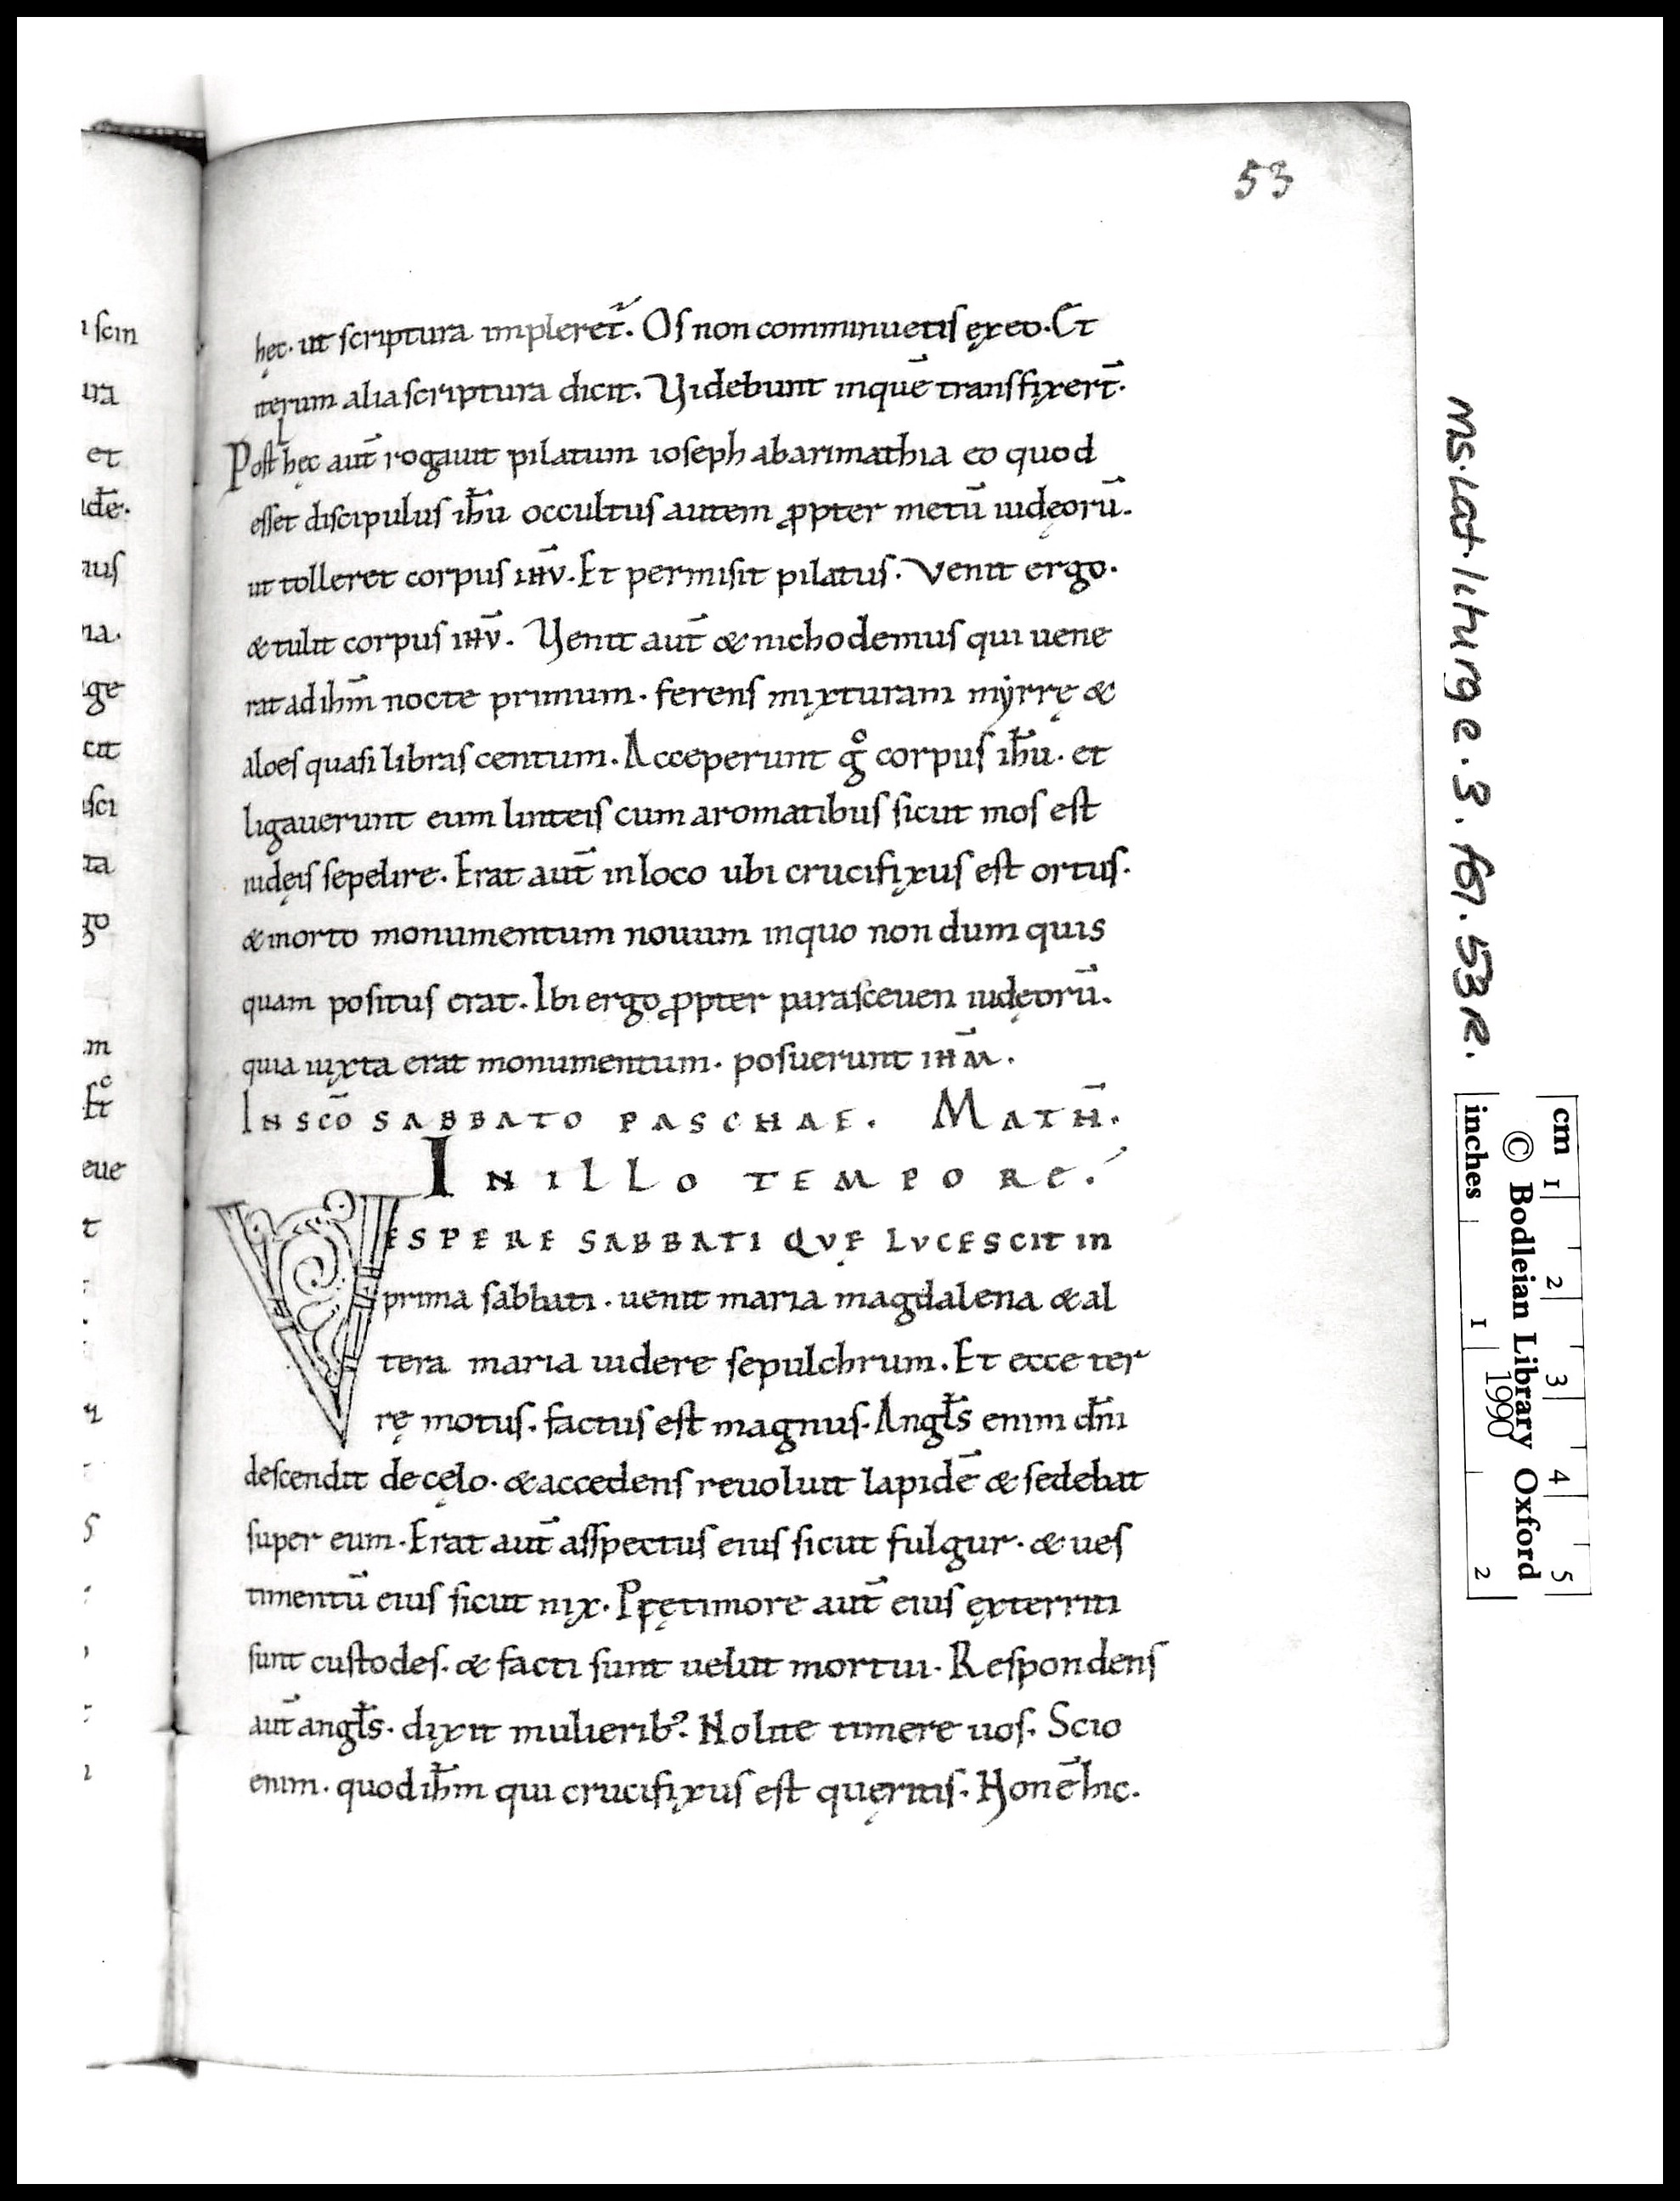 53
hęc. ut scriptura impleret᷑. Os non comminuetis ęx eo. Et
iterum alia scriptura dicit. Videbunt inquē transfixert̄.
Post hęc aut̄ rogauit pilatum ioseph abarimathia eo quod
esset discipulus ihū occultus autem ꝓpter metū iudęorū.
ut tolleret corpus iħv̄. Et permisit pilatus. Venit ergo.
& tulit corpus iħv̄. Venit aut̄ & nichodemus qui uene
rat ad ihm̄ nocte primum. ferens mixturam myrrę &
aloes quasi libras centum. Acceperunt gͦ corpus ihū. et
ligauerunt eum linteis cum aromatibus sicut mos est
iudęis sepelire. Erat aut̄ inloco ubi crucifixus est ortus.
& inorto monumentum nouum inquo non dum quis
quam positus erat. Ibi ergo ꝓpter parasceuen iudęorū.
quia iuxta erat monumentum. posuerunt iħm̄.
IN SCŌ SABBATO PASCHAE. MATH̄.
IN ILLO TEMPORE.
VESPERE SABBATI QVĘ LVCESCIT in
prima sabbati. uenit maria magdalena & al
tera maria uidere sepulchrum. Et ecce ter
rę motus. factus est magnus. Angl̄s enim dn̄i
descendit de cęlo. & accedens reuoluit lapidē & sedebat
super eum. Erat aut̄ asspectus eius sicut fulgur. & ues
timentū eius sicut nix. Prę timore aut̄ eius ęxterriti
sunt custodes. & facti sunt uelut mortui. Respondens
aut̄ angl̄s. dixit mulierib; Nolite timere uos. Scio
enim. quod ihm̄ qui crucifixus est quęritis. Non ē hic.
MS. Lat. liturg e. 3. fol. 53r.
cm 1 2 3 4 5
© Bodleian Library Oxford
1990
inches 1 2